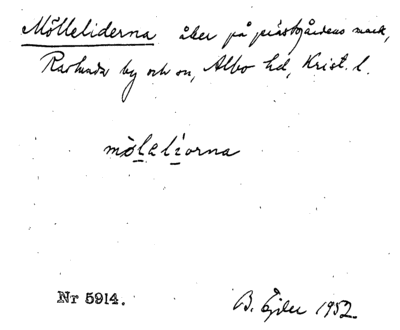 Mölleliderna åker på prästgårdens mark,
by och sn, Albo hd, Krist. l.
möleliorna
Nr 5914.
B. Ejder 1952.